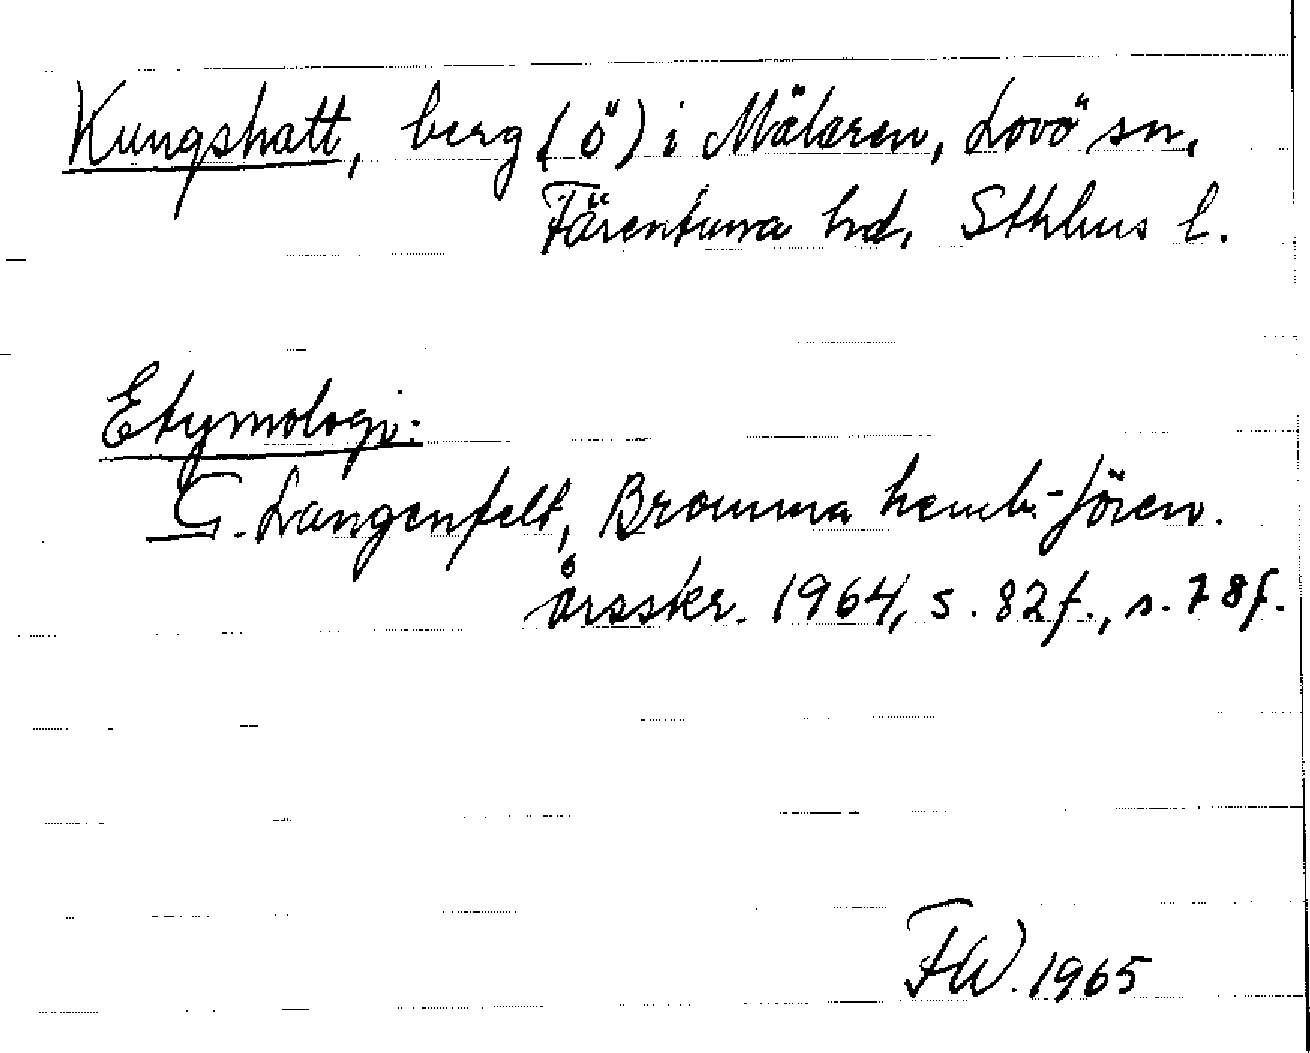 Kungshatt, berg (ö) i Mälaren, Lovö sn,
Färentuna hd, Sthlms l.
Etymologi:
G. Langenfelt, Bromma hemb.-fören.
årsskr. 1964, s. 82f., s. 78f.
FW. 1965